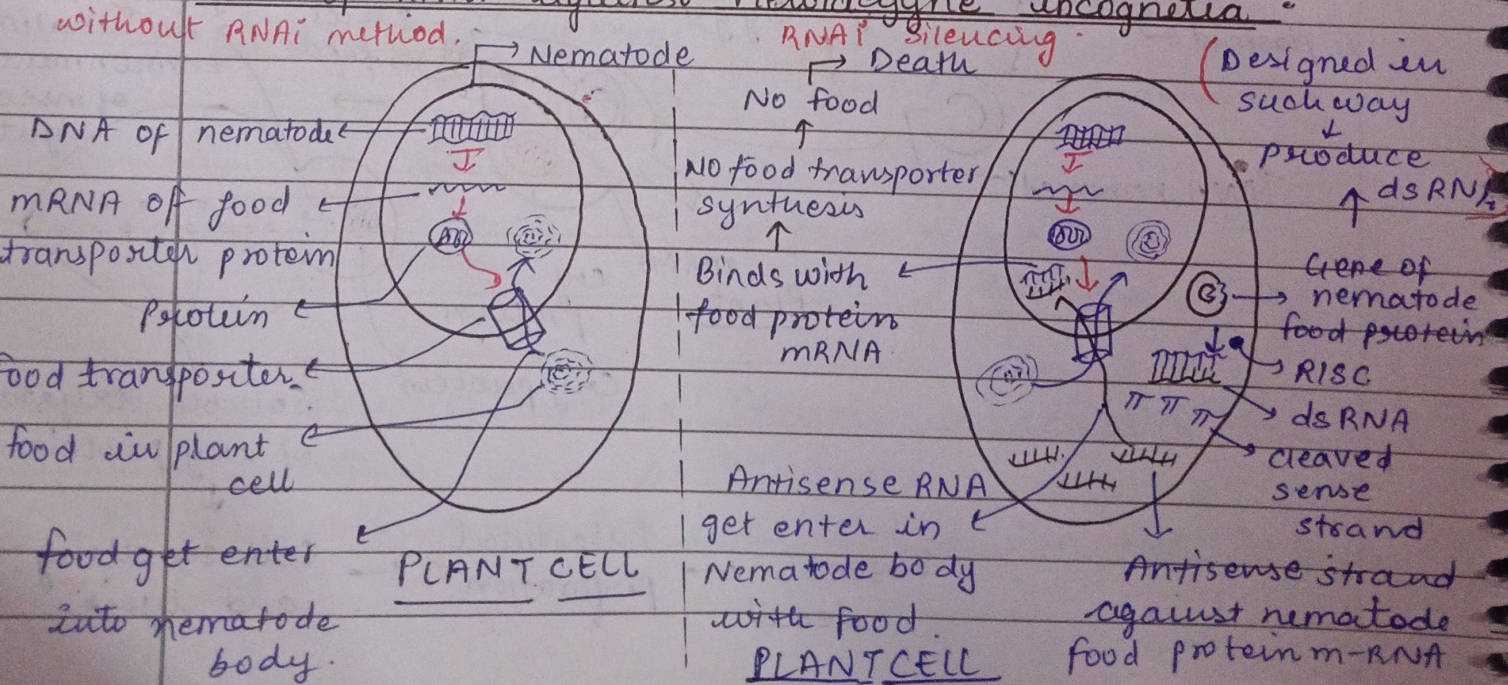 against Meloidegyne incognetia
without RNAi method.
Nematode
DNA of nematode
mRNA of food
transporter protein
Protein
food transporter
food in plant
cell
food get enter
into nematode
body.
PLANT CELL
RNAi Silencing
Death
No food
No food transporter
synthesis
Binds with
food protein
mRNA
Antisense RNA
get enter in
Nematode body
with food.
PLANT CELL
(Designed in
such way
produce
dsRNA
Gene of
nematode
food protein
RISC
dsRNA
cleaved
sense
strand
Antisense strand
against nematode
food protein m-RNA